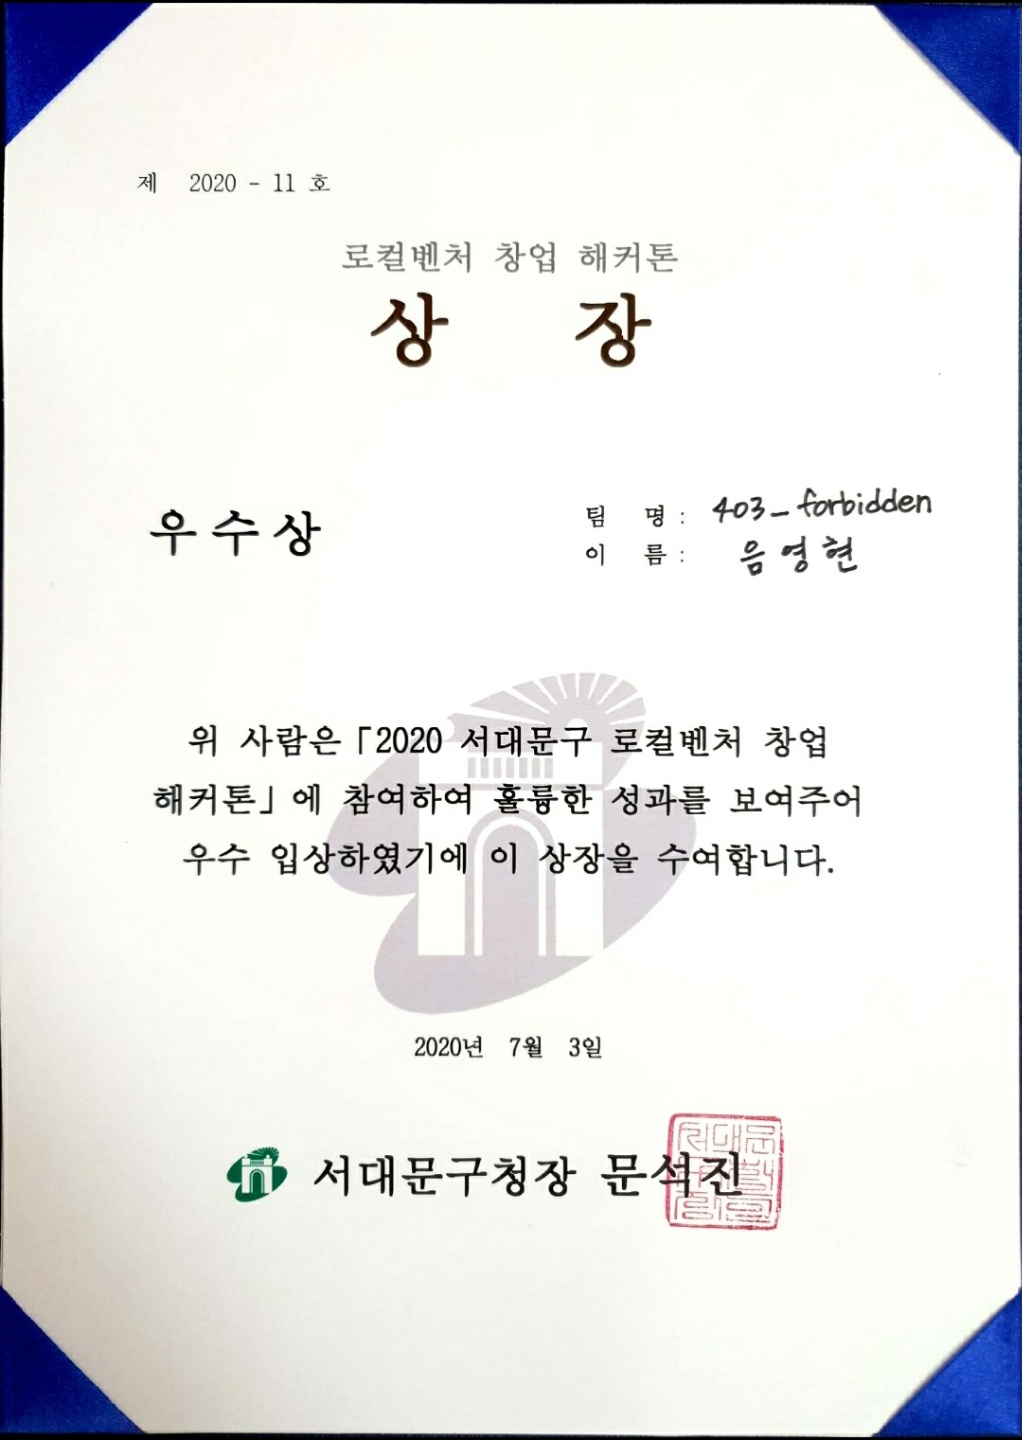 제 2020 - 11 호
로컬벤처 창업 해커톤
상 장
우수상
팀 명 : 403_forbidden
이 름 : 음영현
위 사람은 「2020 서대문구 로컬벤처 창업
해커톤」에 참여하여 훌륭한 성과를 보여주어
우수 입상하였기에 이 상장을 수여합니다.
2020년 7월 3일
서대문구청장 문석진